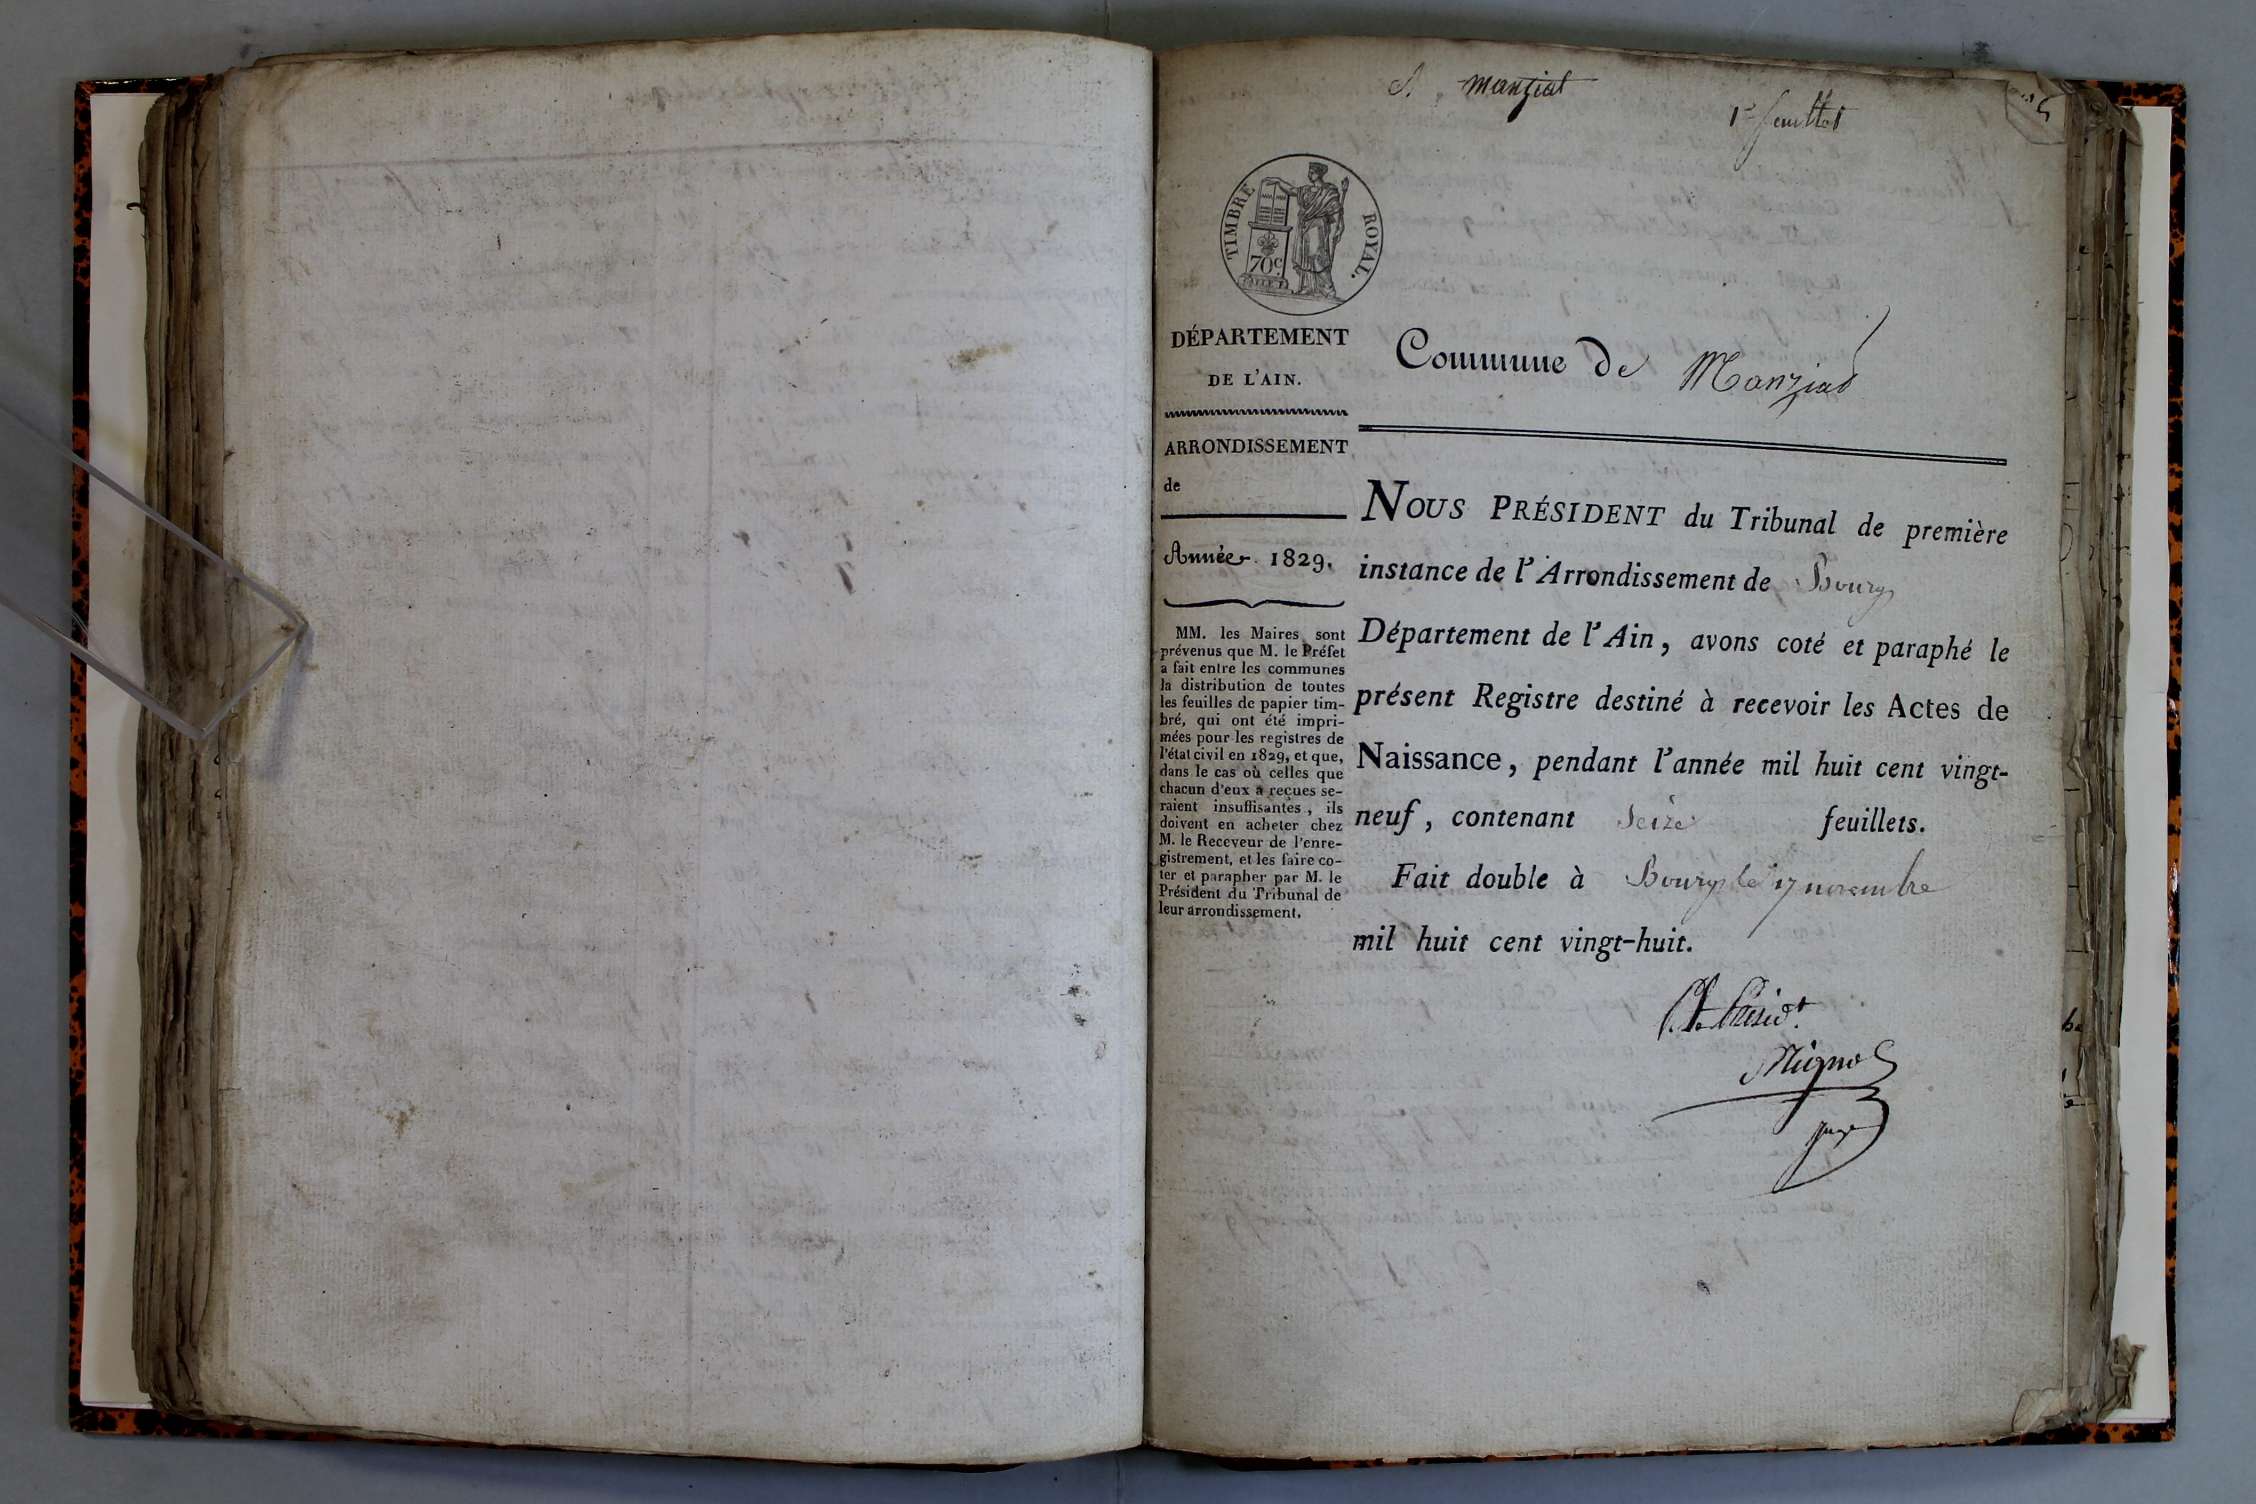 A manziat
1er feuillet
TIMBRE ROYAL.
70c
DÉPARTEMENT
DE L'AIN.
ARRONDISSEMENT
de
Année 1829.
MM. les Maires sont
prévenus que M. le Préfet
a fait entre les communes
la distribution de toutes
les feuilles de papier tim-
bré, qui ont été impri-
mées pour les registres de
l'état civil en 1829, et que,
dans le cas où celles que
chacun d'eux a reçues se-
raient insuffisantes, ils
doivent en acheter chez
M. le Receveur de l'enre-
gistrement, et les faire co-
ter et parapher par M. le
Président du Tribunal de
leur arrondissement.
Commune de Manziat
NOUS PRÉSIDENT du Tribunal de première
instance de l'Arrondissement de Bourg
Département de l'Ain, avons coté et paraphé le
présent Registre destiné à recevoir les Actes de
Naissance, pendant l'année mil huit cent vingt-
neuf, contenant Seize feuillets.
Fait double à Bourg le 17 novembre
mil huit cent vingt-huit.
Présidt.
juge